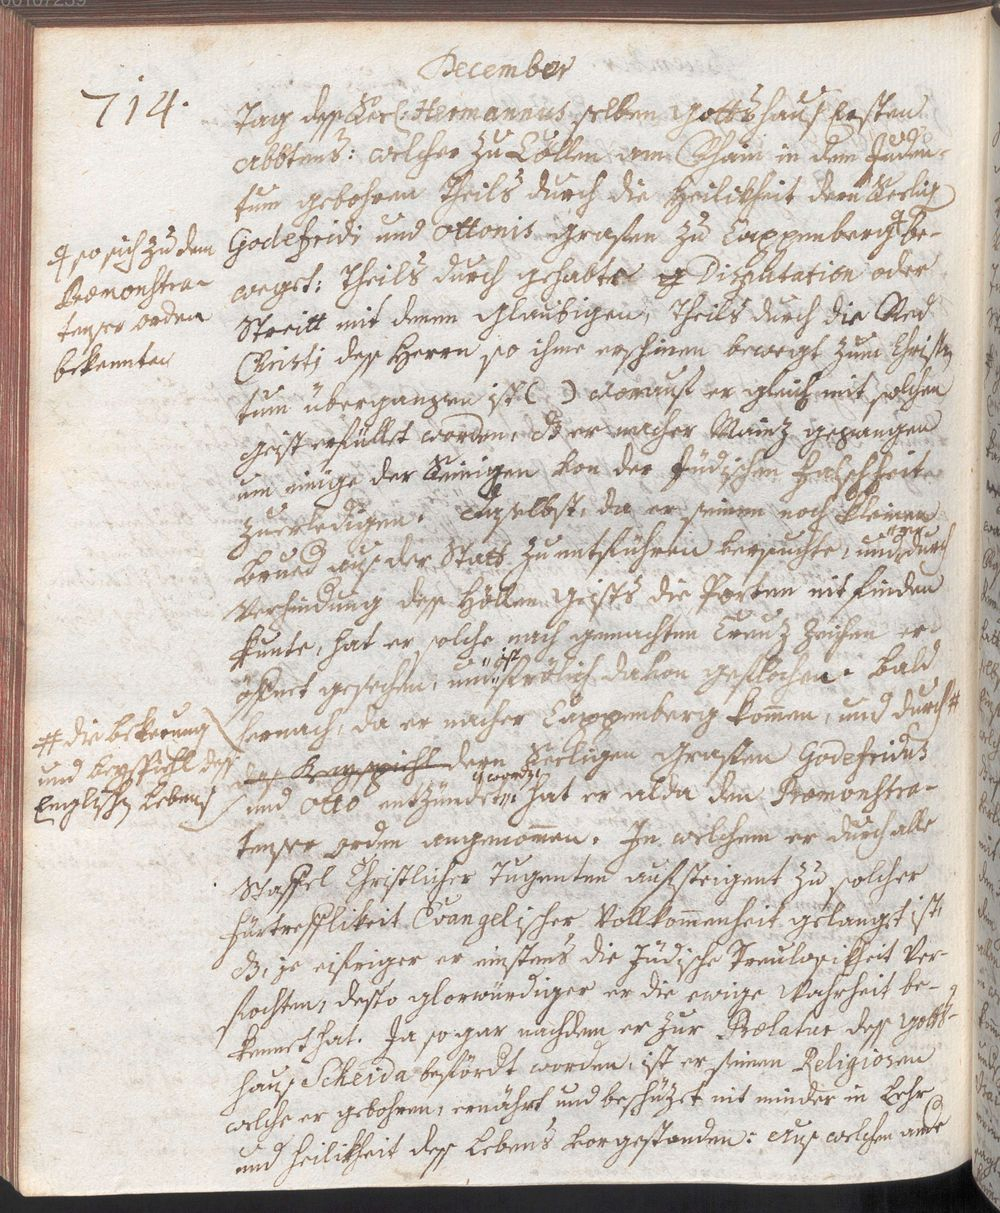 December
714.
Tag deß Seel: Hermannus selben Gottshauß Ersten
Abbtens: welcher zu Cöllen am Rhein in dem Juden-
tum gebohren theils durch die Heilikheit deren Seelig
Godefridi und Ottonis Grafen zu Cappenberg be-
weget: theils durch gehabte Disputation oder
Streitt mit denen Glaubigen, theils durch die Red
Christi deß Herrn so ihme erschinen bewegt zum Christen
tum übergangen ist ( ) worauf er gleich mit solchen
geist erfüllet worden, dß er nacher Maintz gegangen
um einige der Seinigen von der Jüdischen falschheit
zuerledigen. daselbst, da er seinen noch kleinen
Brued aus der Statt zuentführen versuchte, und er durch
Verhindung deß Höllen geists die Porten nit finden
kunte, hat er solche nach gemachten Creutz Zeichen er-
öfnet gesechen, und ist frölich davon geflochen. Bald
hernach, da er nacher Cappenberg kommen, und durch #
das Beyspiehl deren Seeligen Grafen Godefridus
und Otto entzündet worden hat er alda den Præmonstra-
tenser orden angenommen. In welchem er durch alle
Staffel Christlicher Tugenten aufsteigent zu solcher
fürtrefflikeit Evangelischer Vollkommenheit gelangt ist,
dß, je eifriger er einstens die Jüdische Treulosikheit ver-
fochten, desto glorwürdiger er die ewige Wahrheit be-
kennet hat. Ja so gar nachdem er zur Prælatur deß Gotts-
hauß Scheida befördt worden, ist er seinen Religiosen
welche er gebohren, ernährt und beschüzet nit minder in Lehr
und heilikheit deß Lebens vorgestanden: Aus welchen ande
so sich zu dem
Præmonstra-
tenser orden
bekennten
# die bekerung
und beyspiehl deß
Englischen Lebens